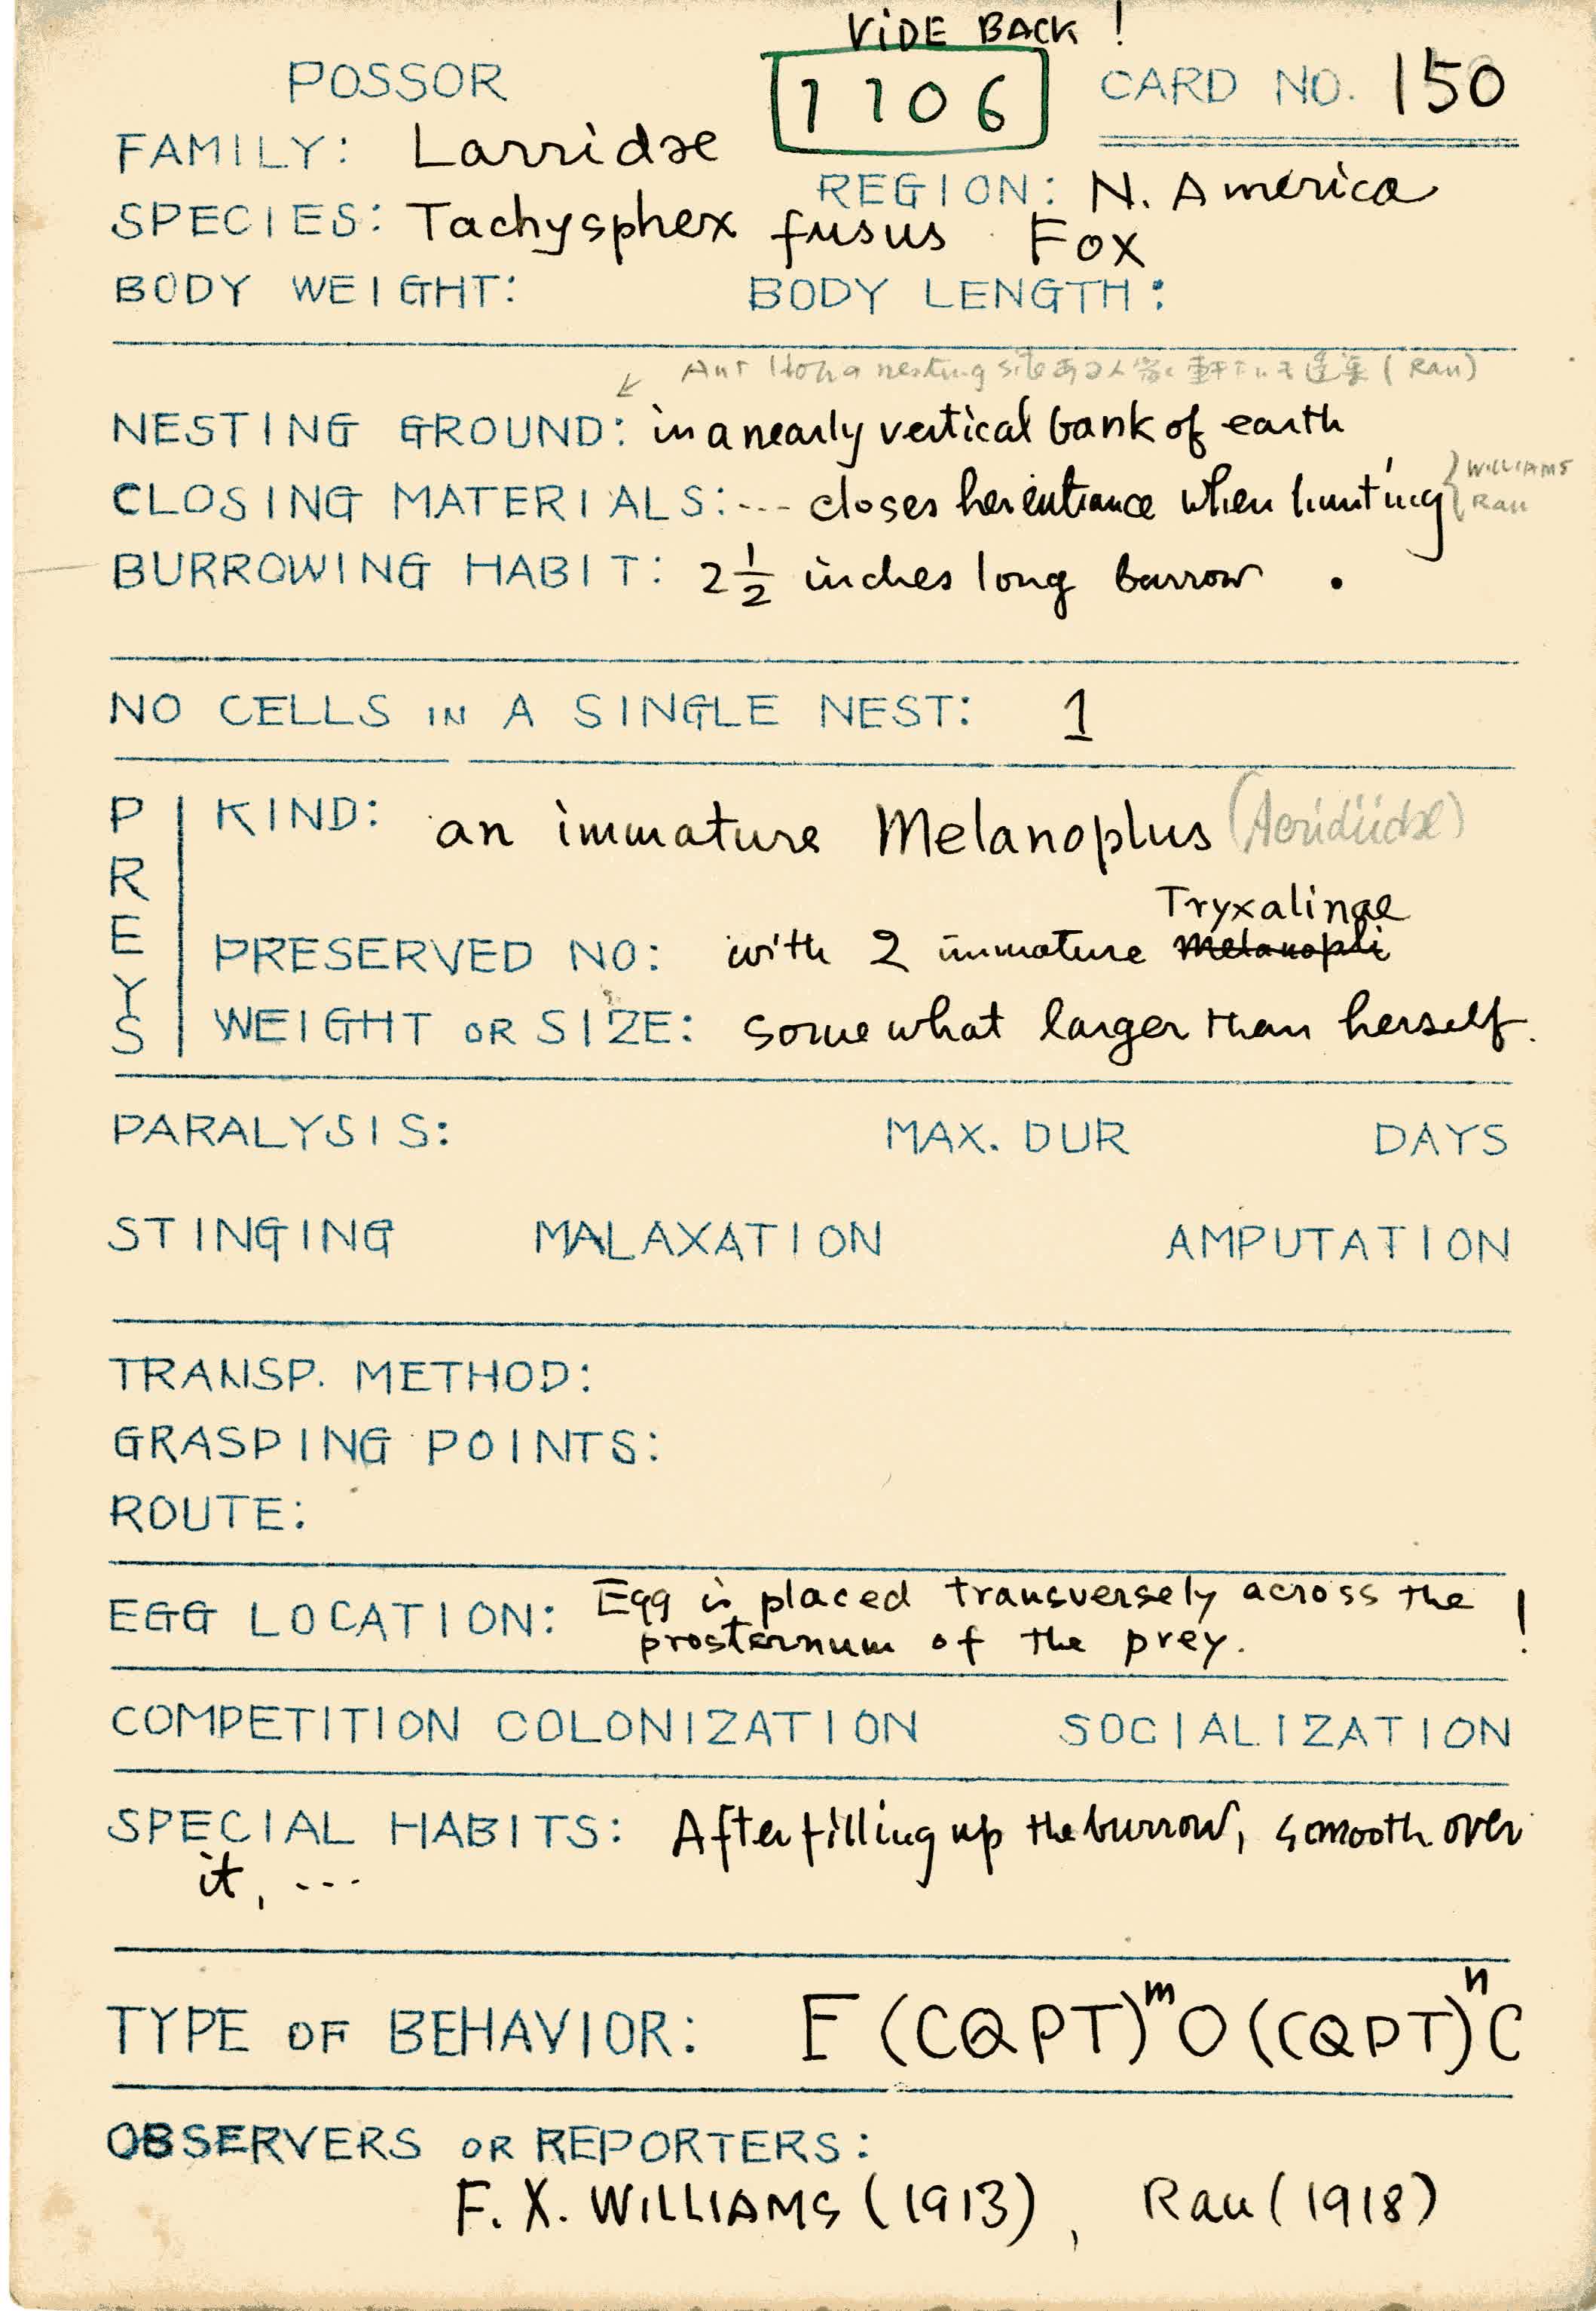 VIDE BACK !
POSSOR
1106
CARD NO. 150
FAMILY: Larridæ
REGION: N. America
SPECIES: Tachysphex fusus Fox
BODY WEIGHT: BODY LENGTH:
nesting site (Rau)
NESTING GROUND: in a nearly vertical bank of earth
CLOSING MATERIALS: --- closes her entrance when hunting
WILLIAMS
Rau
BURROWING HABIT: 2 1/2 inches long burrow .
NO CELLS IN A SINGLE NEST: 1
PREYS
KIND: an immature Melanoplus (Acridiidæ)
Tryxalinae
PRESERVED NO: with 2 immature Melanopli
WEIGHT OR SIZE: somewhat larger than herself.
PARALYSIS: MAX. DUR DAYS
STINGING MALAXATION AMPUTATION
TRANSP. METHOD:
GRASPING POINTS:
ROUTE:
EGG LOCATION: Egg is placed transversely across the
prosternum of the prey. !
COMPETITION COLONIZATION SOCIALIZATION
SPECIAL HABITS: After filling up the burrow, smooth over
it, ---
TYPE OF BEHAVIOR: E (CQPT)ᵐO(CQPT)ⁿC
OBSERVERS OR REPORTERS:
F. X. WILLIAMS (1913), Rau (1918)